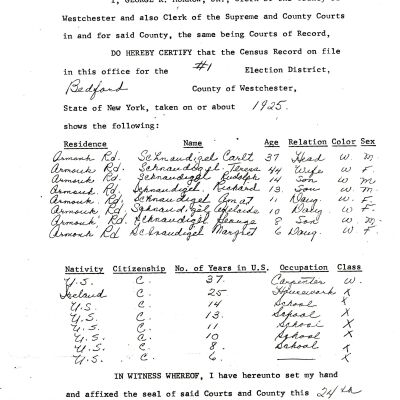 I, GEORGE R. MORROW, JR., Clerk of the County of
Westchester and also Clerk of the Supreme and County Courts
in and for said County, the same being Courts of Record,
DO HEREBY CERTIFY that the Census Record on file
in this office for the #1 Election District,
Bedford County of Westchester,
State of New York, taken on or about 1925.
shows the following:
Residence Name Age Relation Color Sex
Armonk Rd. Schnaudigel Carl 37 Head W. M
Armonk Rd. Schnaudigel Teresa 44 Wife W F.
Armonk Rd. Schnaudigel Rudolph 14 Son W M
Armonk Rd. Schnaudigel, Richard 13 Son W M
Armonk Rd. Schnaudigel 11 Daug. W F
Armonk Rd. Schnaudigel Adelaide 10 Daug. W F
Armonk Rd. Schnaudigel George 8 Son W M
Armonk Rd Schnaudigel Margret 6 Daug. W F
Nativity Citizenship No. of Years in U.S. Occupation Class
U.S. C. 37. Carpenter W.
Iceland C. 25 Housework X
U.S. C. 14 School X
U.S. C. 13. School X
U.S. C. 11 School X
U.S. C. 10 School X
U.S. C. 8. School X
U.S C. 6. X
IN WITNESS WHEREOF, I have hereunto set my hand
and affixed the seal of said Courts and County this 24th